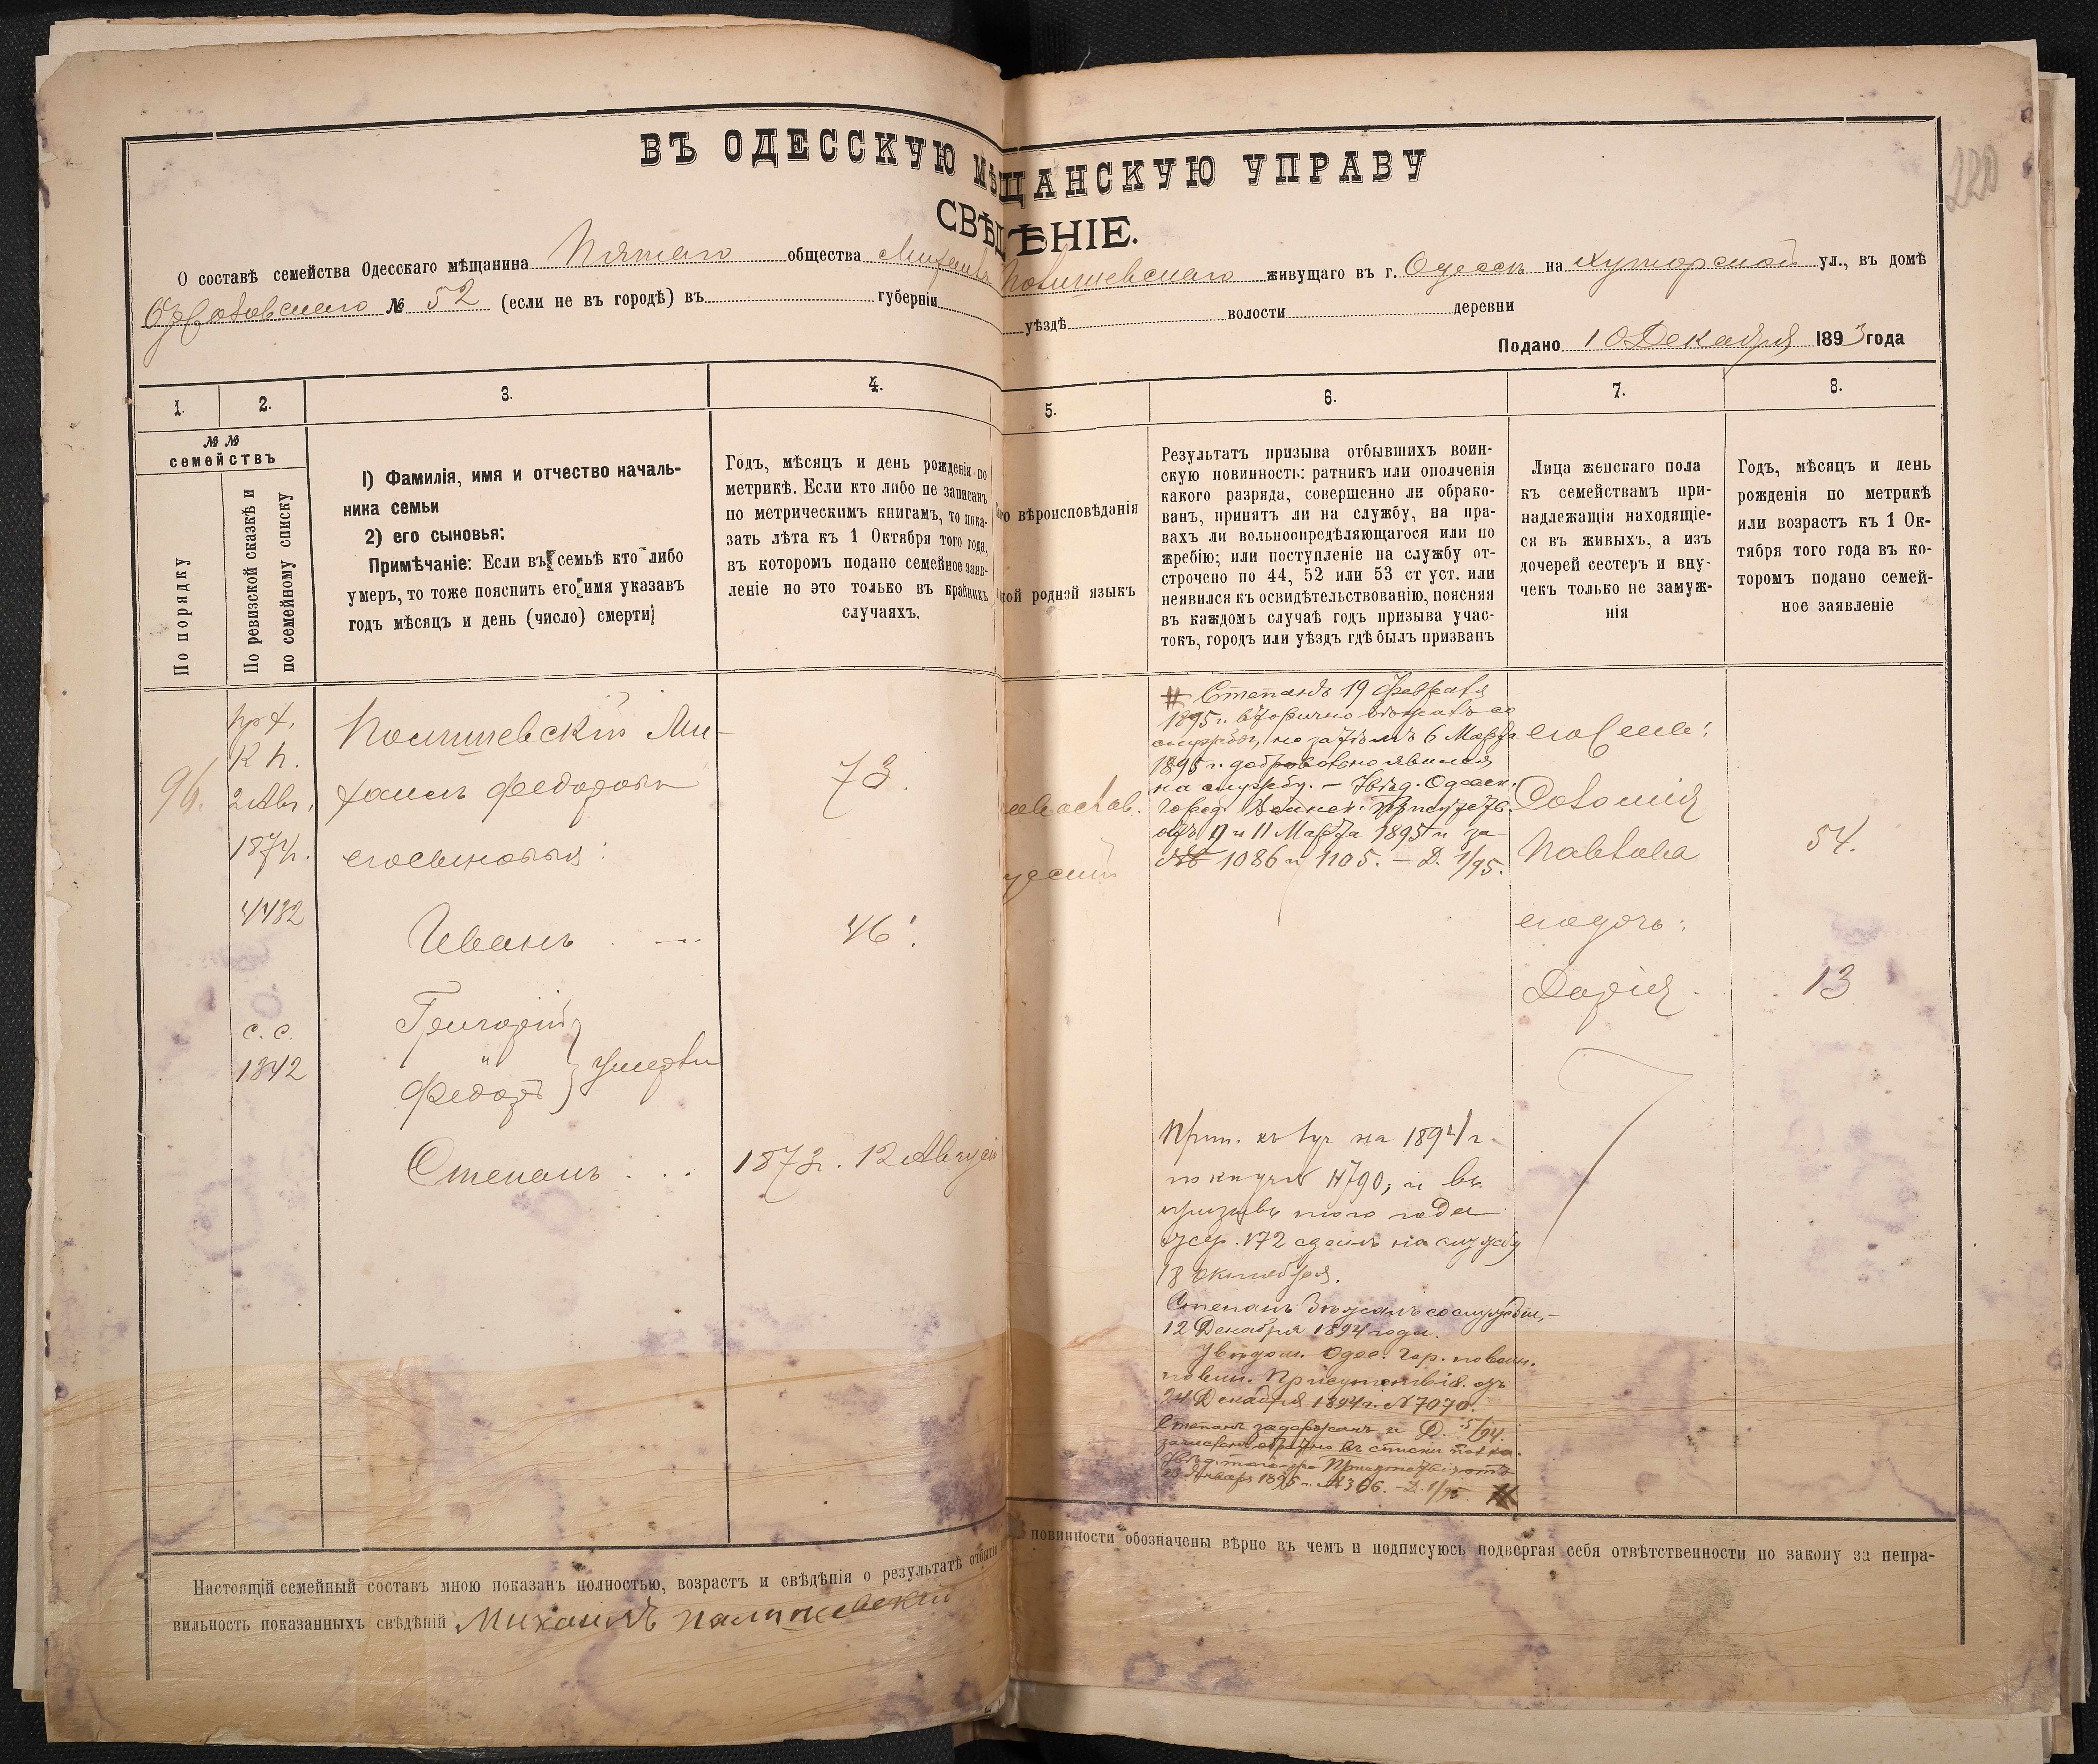 ВЪ ОДЕССКУЮ МѢЩАНСКУЮ УПРАВУ
СВѢДѢНІЕ.
О составѣ семейства Одесскаго мѣщанина Пятаго общества Михаила живущаго въ г. Одессѣ на Хуторской ул., въ домѣ
№ 52 (если не въ городѣ) въ губерніи уѣздѣ волости деревни
Подано 10 Декабря 1893 года
1. 2. 3. 4. 5. 6. 7. 8.
№ №
семействъ
По порядку
По ревизской сказкѣ и
по семейному списку
1) Фамилія, имя и отчество началь-
ника семьи
2) его сыновья:
Примѣчаніе: Если въ семьѣ кто либо
умеръ, то тоже пояснить его имя указавъ
годъ мѣсяцъ и день (число) смерти
Годъ, мѣсяцъ и день рожденія по
метрикѣ. Если кто либо не записанъ
по метрическимъ книгамъ, то пока-
зать лѣта къ 1 Октября того года,
въ которомъ подано семейное заяв-
леніе но это только въ крайнихъ
случаяхъ.
вѣроисповѣданія
родной языкъ
Результатъ призыва отбывшихъ воин-
скую повинность: ратникъ или ополченія
какого разряда, совершенно ли обрако-
ванъ, принятъ ли на службу, на пра-
вахъ ли вольноопредѣляющагося или по
жребію; или поступленіе на службу от-
строчено по 44, 52 или 53 ст уст. или
неявился къ освидѣтельствованію, поясняя
въ каждомъ случаѣ годъ призыва учас-
токъ, городъ или уѣздъ гдѣ былъ призванъ
Лица женскаго пола
къ семействамъ при-
надлежащія находящіе-
ся въ живыхъ, а изъ
дочерей сестеръ и вну-
чекъ только не замуж-
нія
Годъ, мѣсяцъ и день
рожденія по метрикѣ
или возрастъ къ 1 Ок-
тября того года въ ко-
торомъ подано семей-
ное заявленіе
96.
К п.
2 Авг.
1874 г.
4482
с. с.
1842
Ми-
хаилъ Федоровъ
его сыновья:
Иванъ
Григорій
"
Федоръ } умерли
Степанъ
73.
46.
1873 г. 12 Августа
# Степанъ 19 Февраля
1895 г. вторично бѣжалъ со
службы, но затѣмъ 6 Марта
1895 г. добровольно явился
на службу. — Увѣд. Одесск.
Город. Воинск. Присутств.
отъ 9 и 11 Марта 1895 г. за
№№ 1086 и 1105. — Д. 1/95.
на 1894 г.
и въ
призывъ того года
172 сданъ на службу
18 октября.
Степанъ бѣжалъ со службы,
12 Декабря 1894 года.
Увѣдом. Одес. Гор. по воин.
повин. Присутствія отъ
24 Декабря 1894 г. № 7070.
Степанъ задержанъ и Д. 5/94.
зачисленъ обратно въ списки полка.
Увѣд. того-же Присутствія отъ
23 Января 1895 г. № 366. — Д. 1/95 #
его жена:
Соломія
Павлова
его дочь:
Дарія
54.
13
Настоящій семейный составъ мною показанъ полностью, возрастъ и свѣдѣнія о результатѣ повинности обозначены вѣрно въ чемъ и подписуюсь подвергая себя отвѣтственности по закону за непра-
вильность показанныхъ свѣдѣній Михаилъ